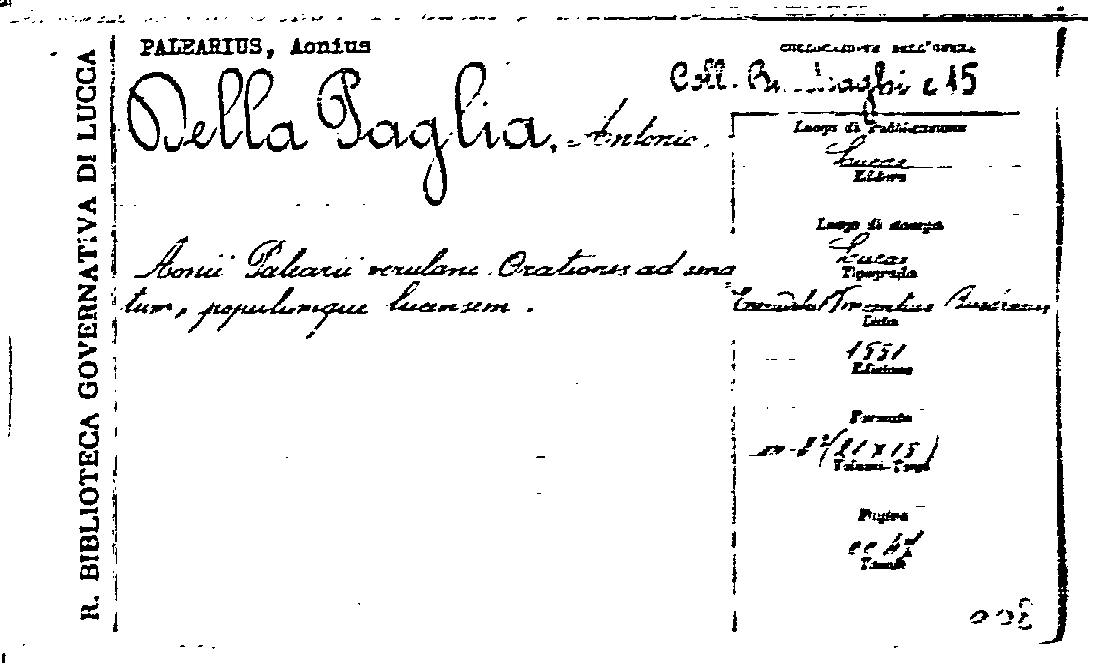 R. BIBLIOTECA GOVERNATIVA DI LUCCA
PALEARIUS, Aonius
Della Paglia, Antonio.
Aonii Palearii verulani Orationes ad sena
tum, populumque lucensem.
COLLOCAZIONE DELL'OPERA
Coll. c 15
Luogo di Pubblicazione
Lucae
Editore
Luogo di stampa
Lucae
Tipografia
Data
1551
Edizione
Formato
in-8° (21 X 15)
Volumi-Tomi
Pagine
cc
Tavole